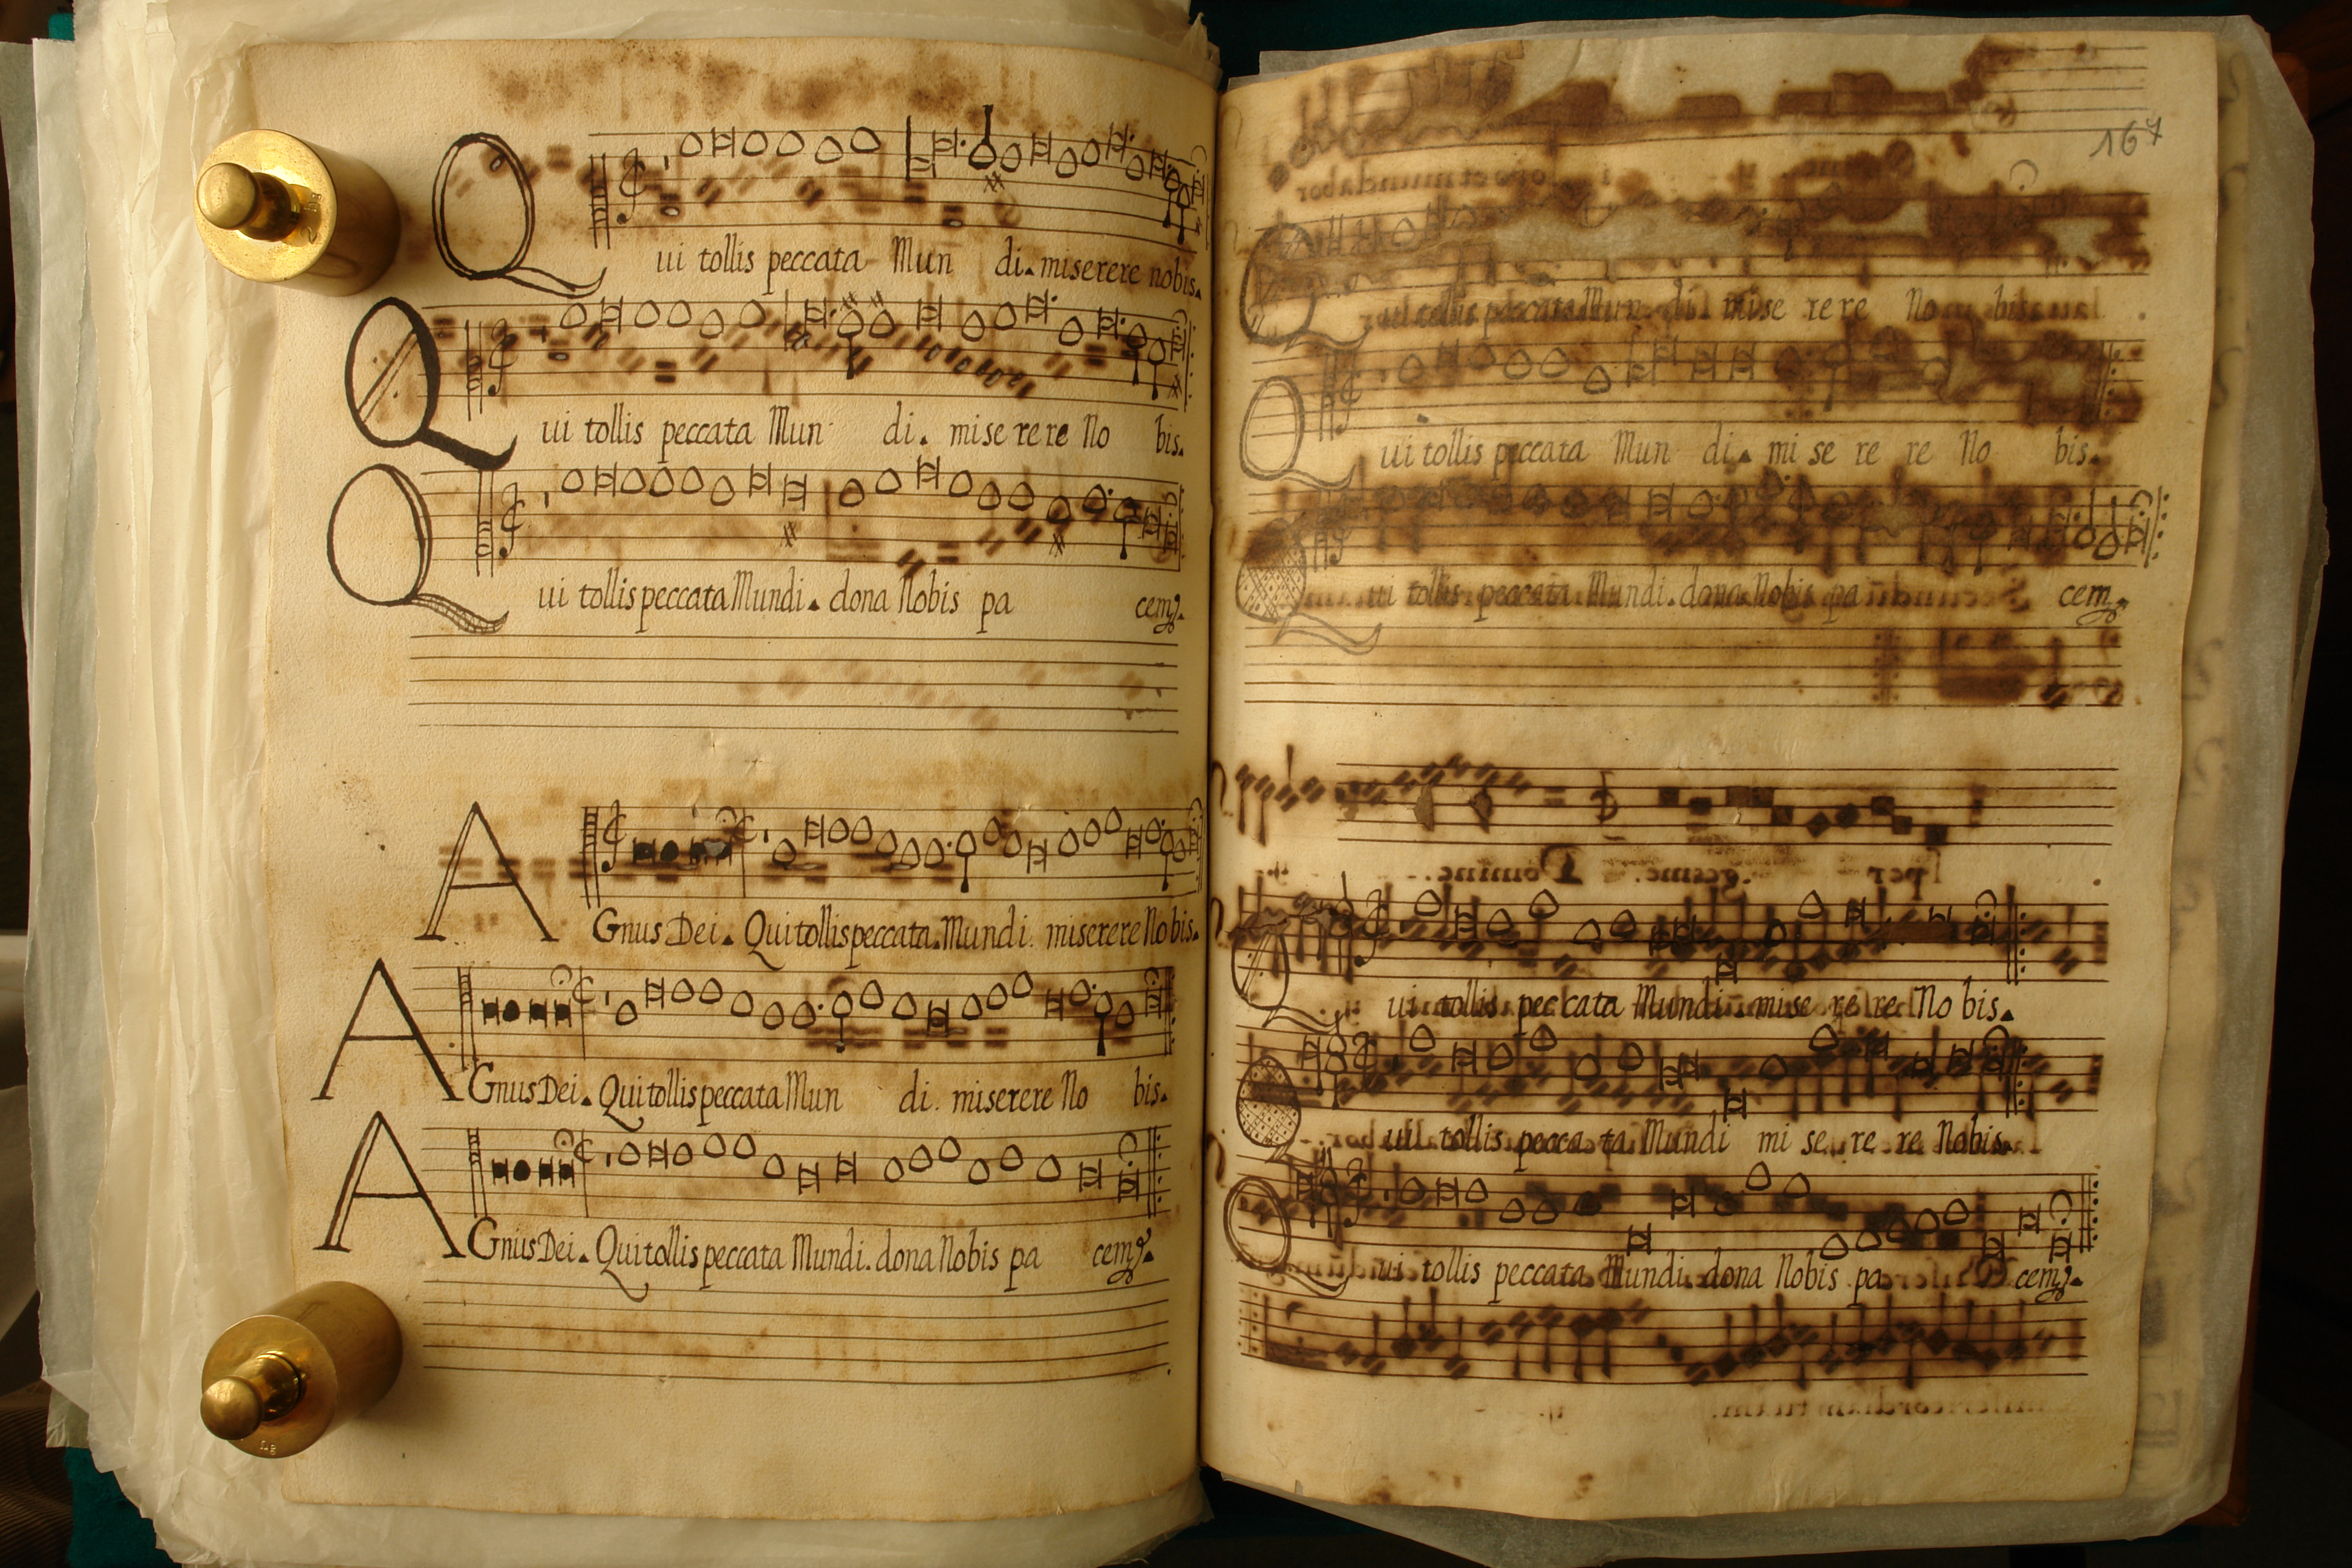 Qui tollis peccata Mun di. miserere nobis.
Qui tollis peccata Mun di. mise re re No bis.
Qui tollis peccata Mundi. dona Nobis pa cem.
AGnus Dei. Qui tollis peccata. Mundi. miserere No bis.
AGnus Dei. Qui tollis peccata Mun di. miserere No bis.
AGnus Dei. Qui tollis peccata Mundi. dona Nobis pa cem.
167
Qui tollis peccata Mun di mise re re No bis
Qui tollis peccata Mun di. mi se re re No bis.
Qui tollis peccata Mundi. dona Nobis pa cem
Qui tollis pec cata Mundi. mise re re No bis.
Qui tollis pecca ta Mundi mi se re re Nobis.
Qui tollis peccata Mundi. dona Nobis pa cem.